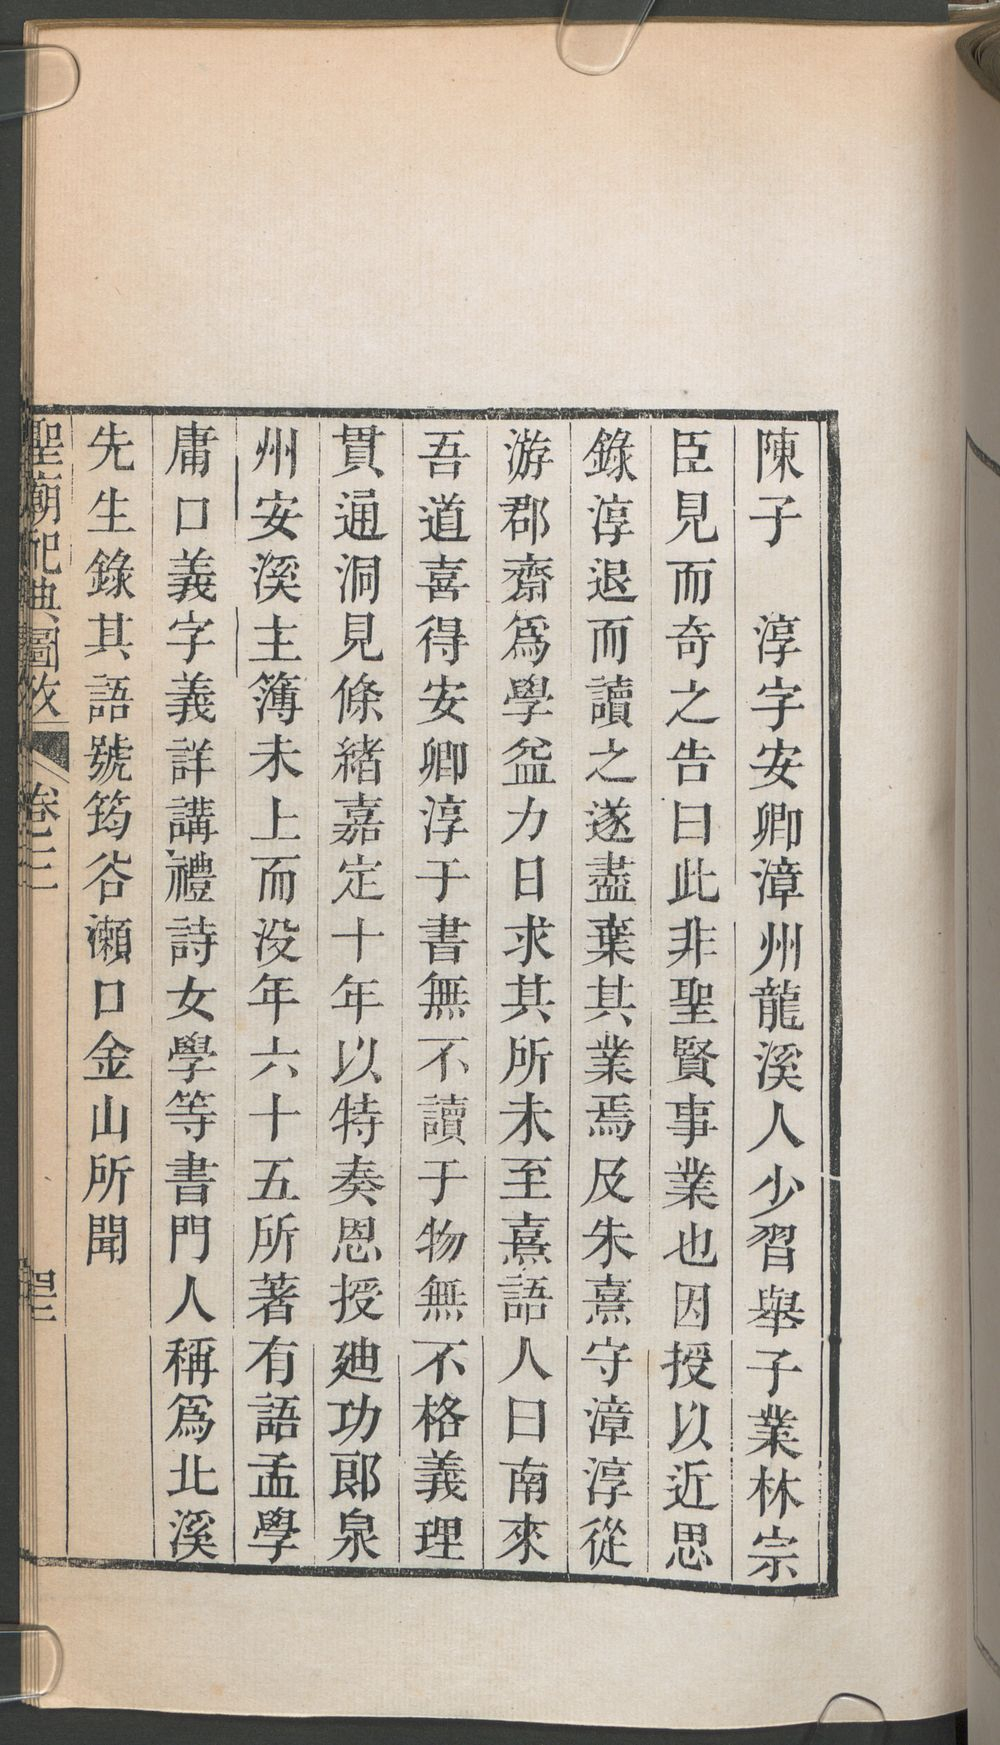 陳子　淳字安卿漳州龍溪人少習舉子業林宗
臣見而奇之告曰此非聖賢事業也因授以近思
錄淳退而讀之遂盡棄其業焉及朱熹守漳淳從
游郡齋爲學益力日求其所未至熹語人曰南來
吾道喜得安卿淳于書無不讀于物無不格義理
貫通洞見條緒嘉定十年以特奏恩授廸功郎泉
州安溪主簿未上而沒年六十五所著有語孟學
庸口義字義詳講禮詩女學等書門人稱爲北溪
先生錄其語號筠谷瀨口金山所聞
聖廟祀典圖攷　卷三